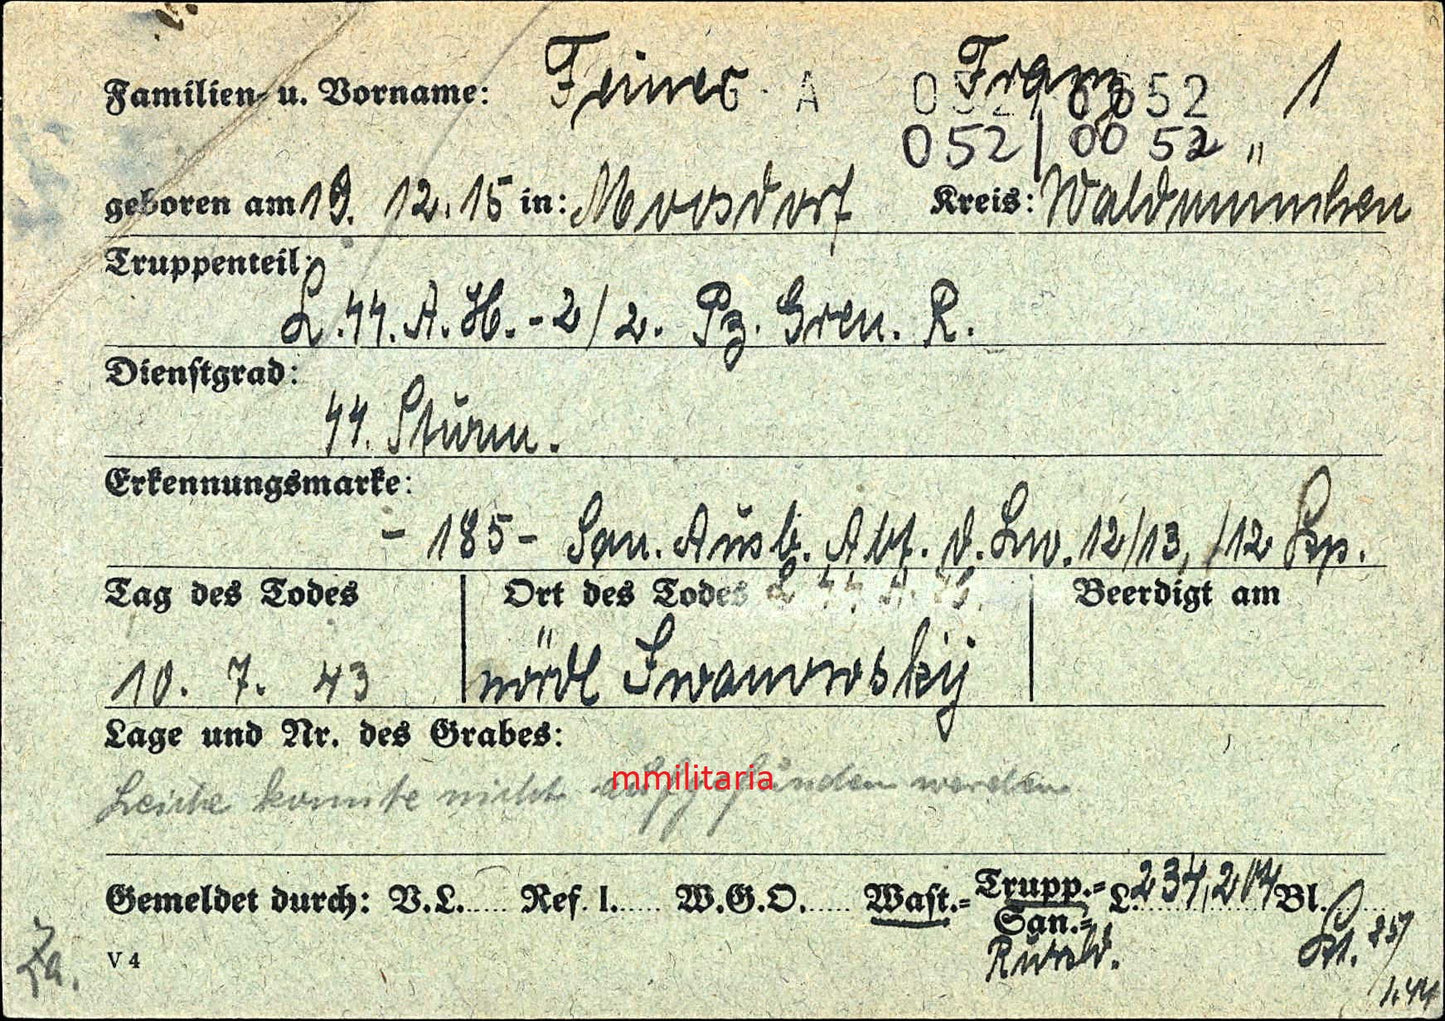 Familien- u. Vorname: Feiner Franz 1
G A 052/0052
geboren am 19. 12. 15 in: Moosdorf Kreis: Waldmünchen
Truppenteil:
L.SS.A.H. - 2/2. Pz. Gren. R.
Dienstgrad:
SS. Sturm.
Erkennungsmarke:
- 185 - San. Ausb. Abt. d. Lw. 12/13, /12 Kp.
Tag des Todes Ort des Todes L SS A. H. Beerdigt am
10. 7. 43 nördl Iwanowskij
Lage und Nr. des Grabes:
Leiche konnte nicht aufgefunden werden
mmilitaria
Gemeldet durch: V.L. Ref. l. W.G.O. Wast.= Trupp.= L. 234, Bl.
San.=
V 4